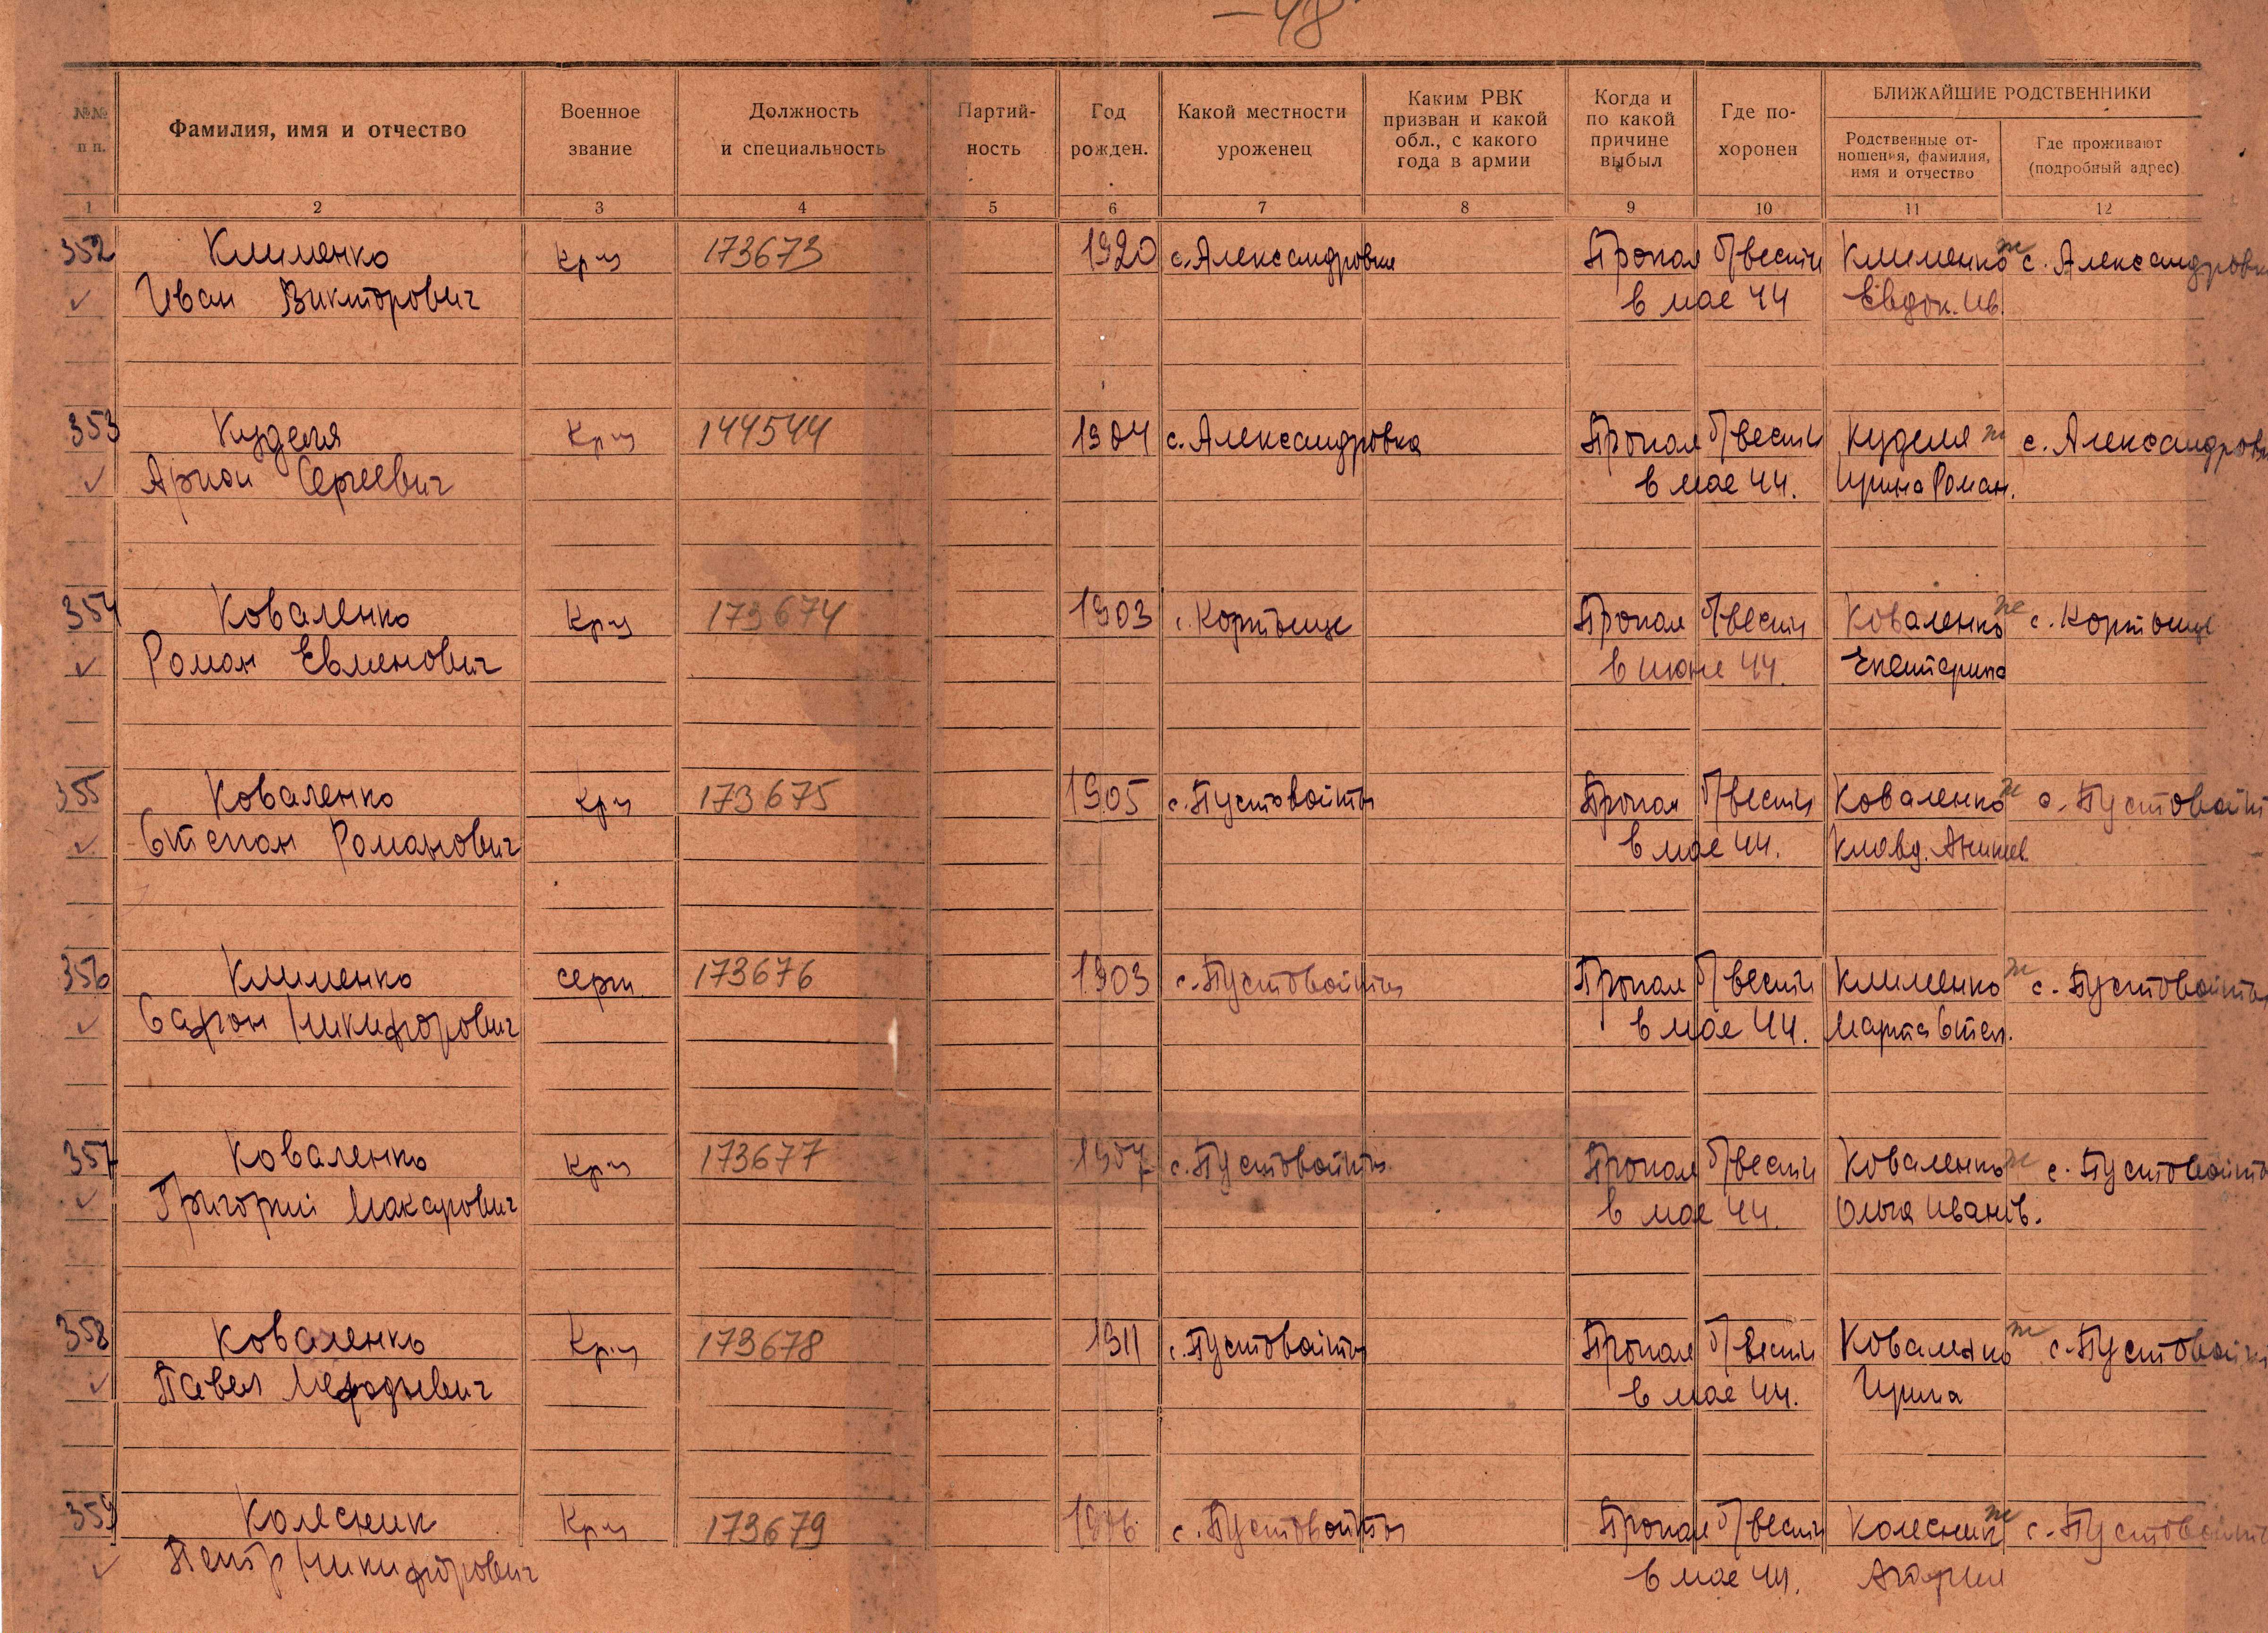 — 48
№№ п п.
Фамилия, имя и отчество
Военное звание
Должность и специальность
Партий-ность
Год рожден.
Какой местности уроженец
Каким РВК призван и какой обл., с какого года в армии
Когда и по какой причине выбыл
Где по-хоронен
БЛИЖАЙШИЕ РОДСТВЕННИКИ
Родственные от-ношения, фамилия, имя и отчество
Где проживают (подробный адрес)
1 2 3 4 5 6 7 8 9 10 11 12
352 Клименко кр-ц 173673 1920 с. Александровка Пропал б/вести Клименко ж с. Александровка
Иван Викторович в мае 44 Евдок. Ив.
353 Куделя кр-ц 144544 1904 с. Александровка Пропал б/вести Куделя ж с. Александровка
Сергеевич в мае 44. Ирина Роман.
354 Коваленко кр-ц 173674 1903 с. Пропал б/вести Коваленко ж с.
Роман Евменович в июне 44. Екатерина
355 Коваленко кр-ц 173675 1905 с. Пустовойты Пропал б/вести Коваленко ж с. Пустовойт
Степан Романович в мае 44. Клавд.
356 Клименко серж. 173676 1903 с. Пустовойты Пропал б/вести Клименко ж с. Пустовойты
Сафон Никифорович в мае 44. Марта Степ.
357 Коваленко кр-ц 173677 1907 с. Пустовойты Пропал б/вести Коваленко ж с. Пустовойты
Григорий Макарович в мае 44. Ольга Иванов.
358 Коваленко кр-ц 173678 1911 с. Пустовойты Пропал б/вести Коваленко ж с. Пустовойт
Павел Мефодьевич в мае 44. Ирина
359 Колесник кр-ц 173679 1906 с. Пустовойты Пропал б/вести Колесник ж с. Пустовойт
Петр Никифорович в мае 44.